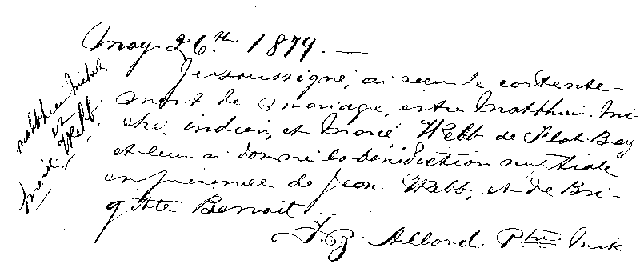 May 26th 1879. —
Je soussigné, ai reçu le consente-
ment de mariage, entre Matthieu Mi-
chel, indien, et Marie Webb de Flat Bay
et leur ai donné la bénédiction nuptiale
en présence de Jean Webb, et de Bri-
gitte Benoit.
Allard Ptre
Matthieu Michel
et
Marie Webb